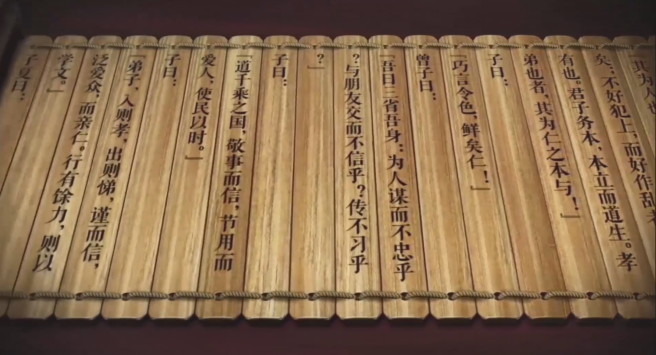 其为人也
矣；不好犯上，而好作乱者
有也。君子务本，本立而道生。孝
弟也者，其为仁之本与！』
子曰：
『巧言令色，鲜矣仁！』
曾子曰：
『吾日三省吾身：为人谋而不忠乎
？与朋友交而不信乎？传不习乎
？』
子曰：
『道千乘之国，敬事而信，节用而
爱人，使民以时。』
子曰：
『弟子，入则孝，出则悌，谨而信，
泛爱众，而亲仁。行有馀力，则以
学文。』
子夏曰：